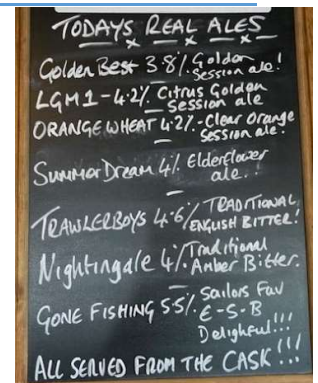 TODAYS REAL ALES
Golden Best 3.8% Golden
Session ale!
LGM1-4.2% Citrus Golden
Session ale
ORANGE WHEAT 4.2%-Clear Orange
Session ale!
Summer Dream 4% Elderflower
ale!!
TRAWLERBOYS 4.6% TRADITIONAL
ENGLISH BITTER!
Nightingale 4% Traditional
Amber Bitter.
GONE FISHING 5.5% Sailors Fav
E-S-B
Delighful!!!
ALL SERVED FROM THE CASK!!!